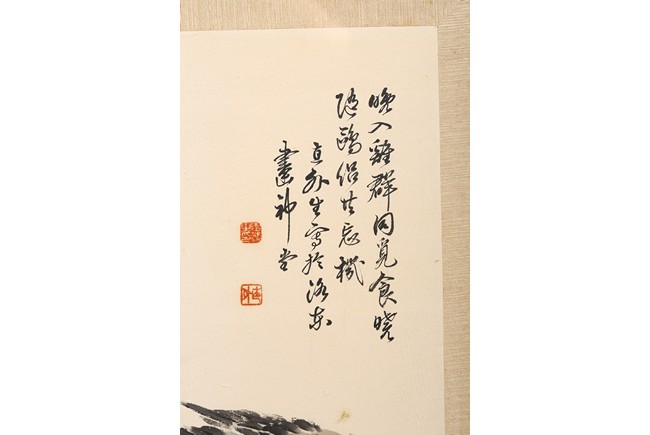 晚入雞群同覓食曉
隨鷗侣共忘機
直外生寫於洛東
畫神堂